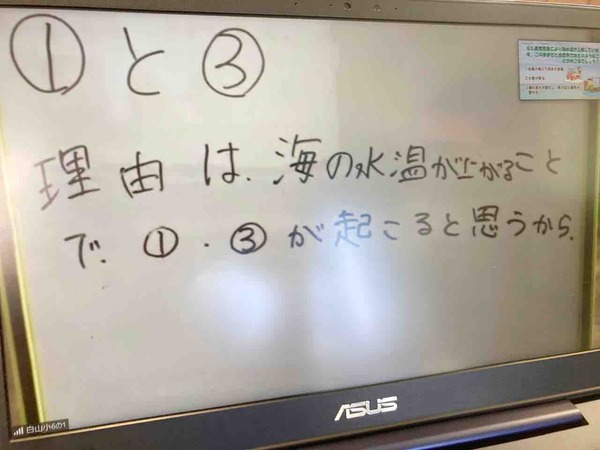 ①と③
理由は、海の水温が上がること
で、①・③が起こると思うから、
ASUS
白山小6の1